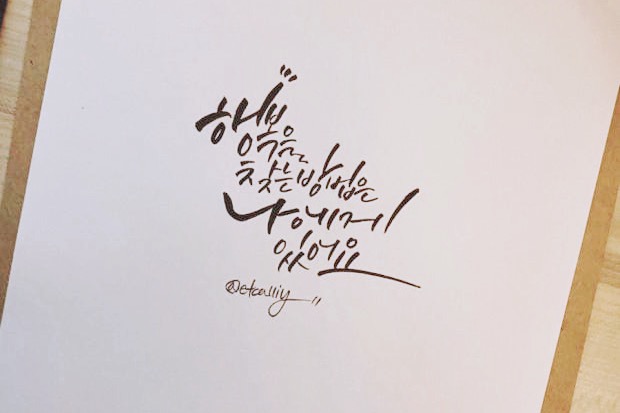 행복을
찾는 방법은
나에게
있어요